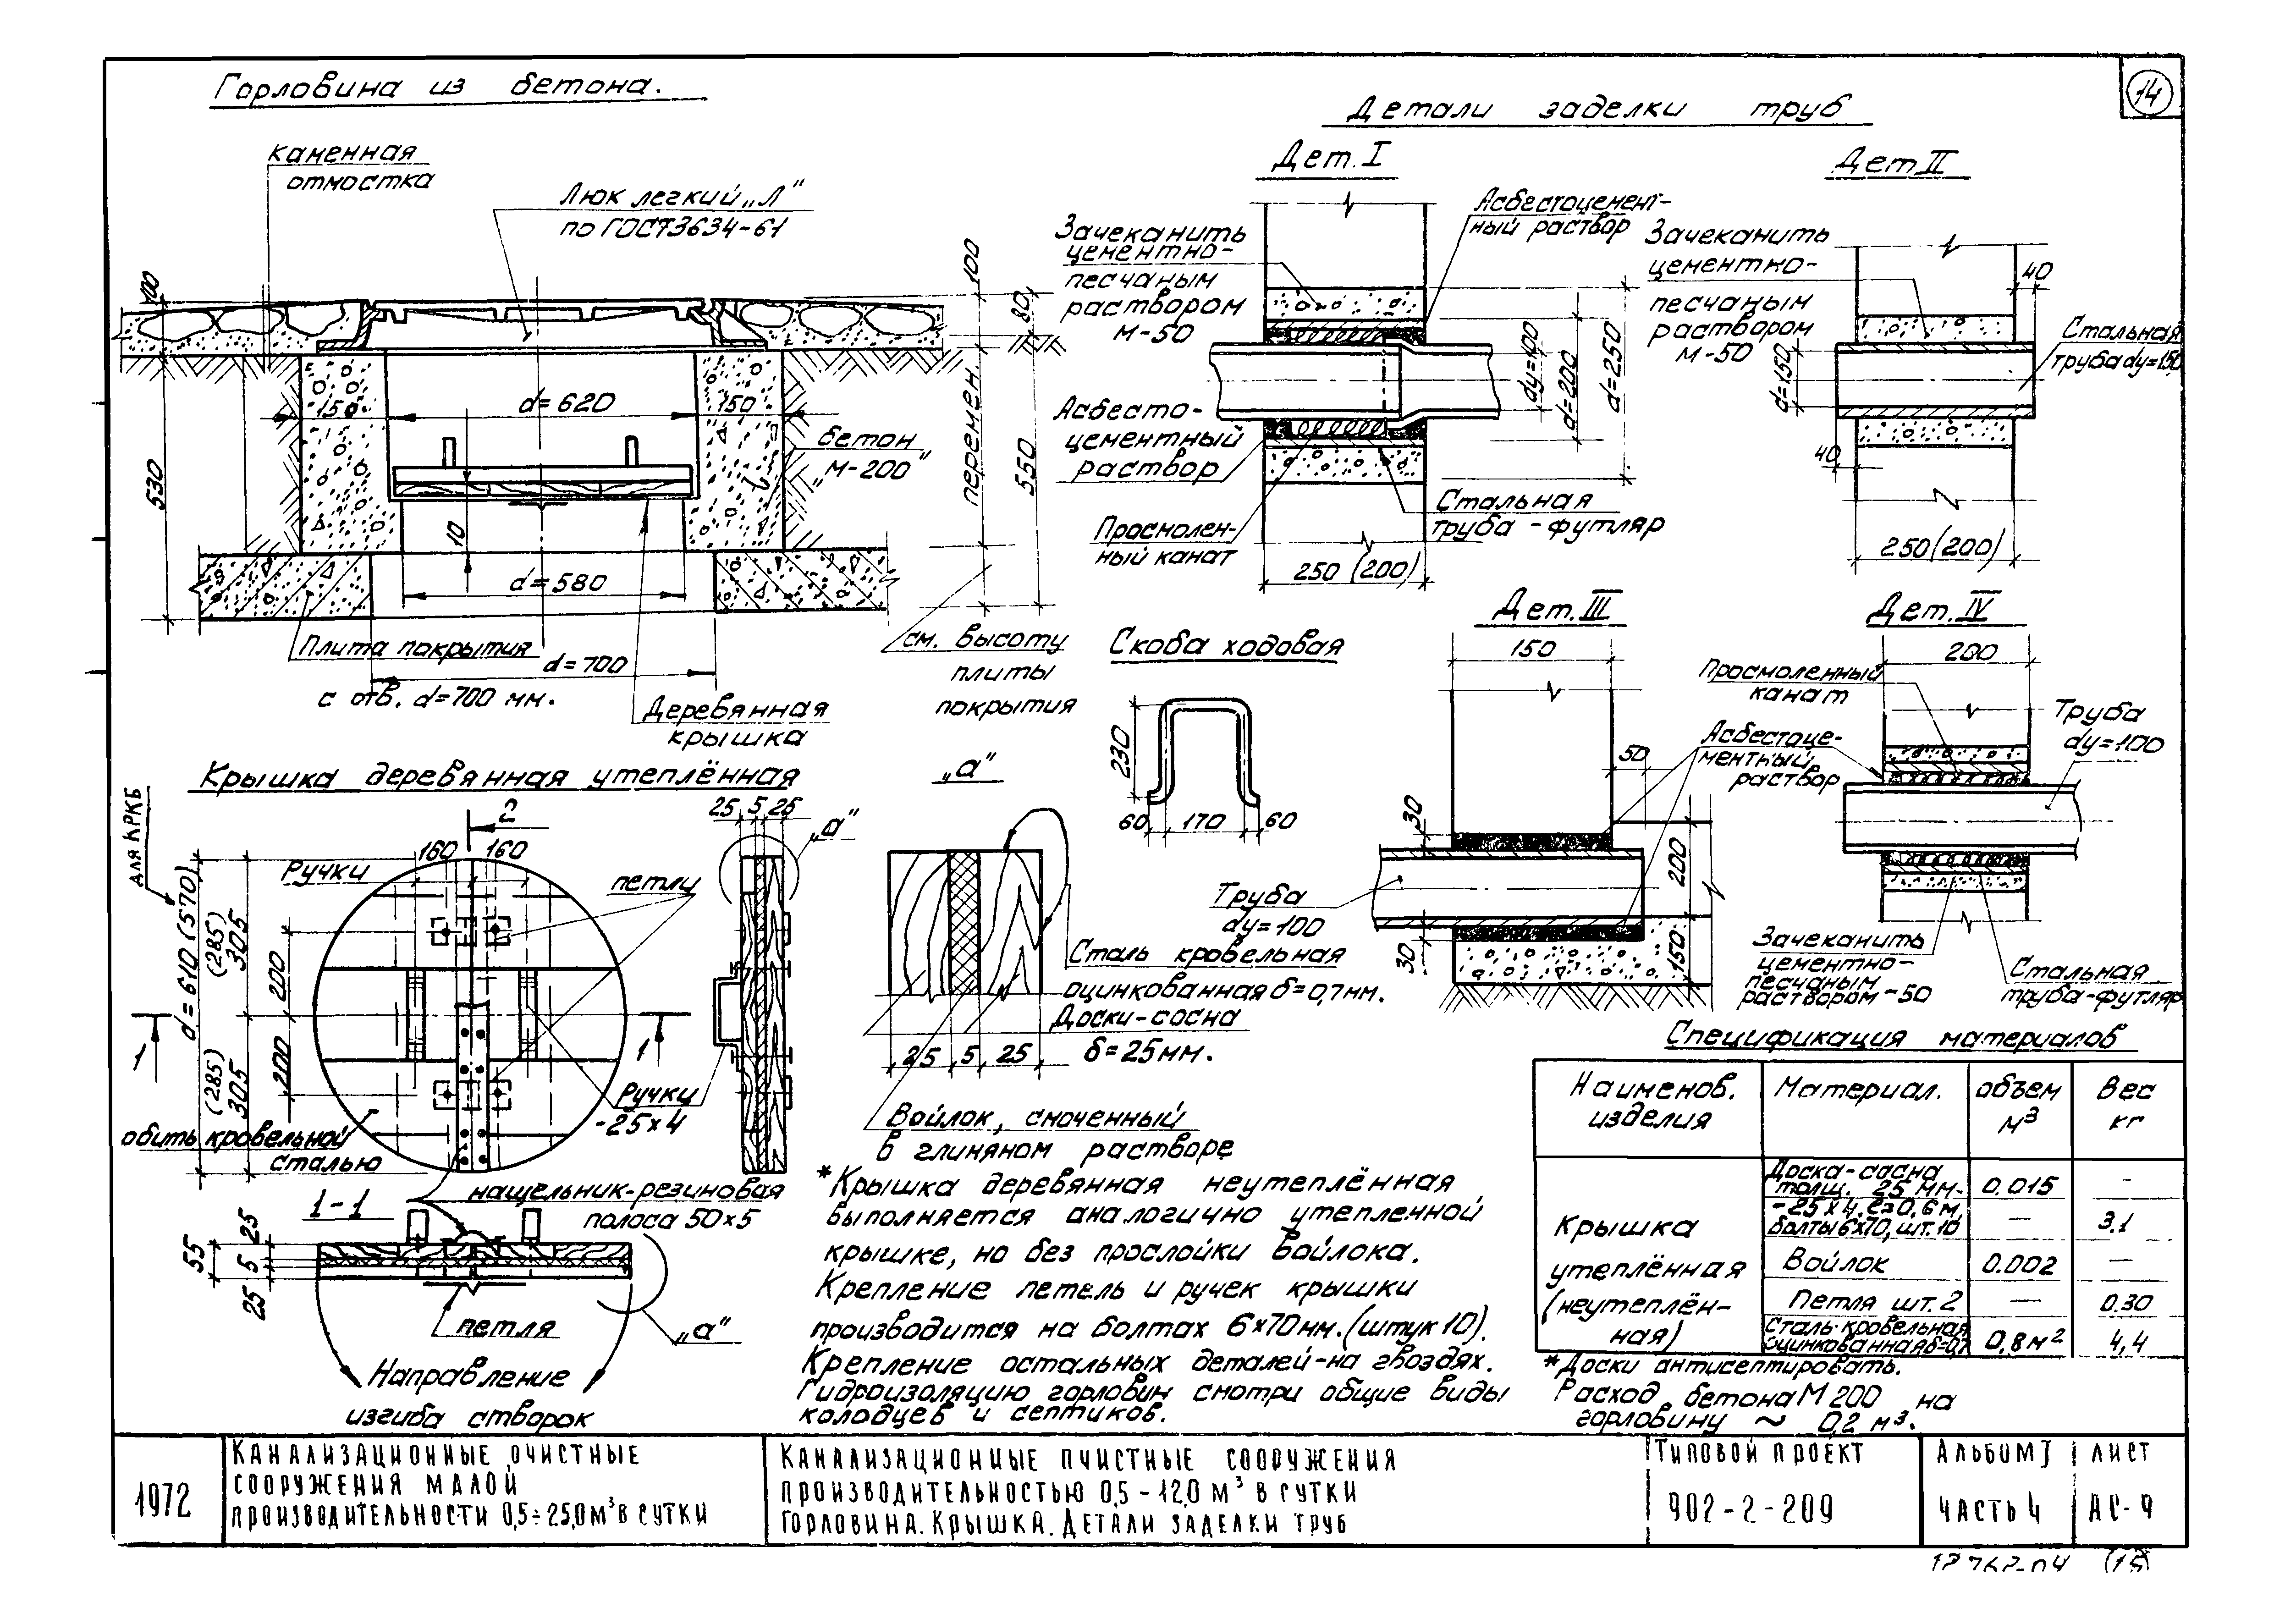 14
Горловина из бетона.
каменная
отмостка
Люк легкий „Л"
по ГОСТ 3634-61
100
530
150
d=620
150
10
d=580
бетон
„М-200"
100
80
перемен.
550
Плита покрытия
с отв. d=700 мм.
d=700
Деревянная
крышка
см. высоту
плиты
покрытия
Детали заделки труб
Дет. I
Зачеканить
цементно-
песчаным
раствором
М-50
Асбестоцемент-
ный раствор
Асбесто-
цементный
раствор
Просмолен-
ный канат
Стальная
труба-футляр
dу=100
d=200
d=250
250 (200)
Дет II
Зачеканить
цементно-
песчаным
раствором
М-50
40
Стальная
труба dу=150
d=150
40
250 (200)
Скоба ходовая
230
60
170
60
Дет. III
150
50
30
Асбестоце-
ментный
раствор
Труба
dу=100
30
200
150
Дет. IV
200
Просмоленный
канат
Труба
dу=100
Зачеканить
цементно-
песчаным
раствором-50
Стальная
труба-футляр
Крышка деревянная утеплённая
для КРКБ
d=610 (570)
(285)
305
(285)
305
200
200
2
160
160
Ручки
петли
1
1
Ручки
-25×4
обить кровельной
сталью
нащельник-резиновая
полоса 50×5
25
5
25
„а"
„а"
Сталь кровельная
оцинкованная δ=0,7мм.
Доски-сосна
δ=25мм.
25
5
25
Войлок, смоченный
в глиняном растворе
1-1
55
25
5
25
петля
„а"
Направление
изгиба створок
*Крышка деревянная неутеплённая
выполняется аналогично утепленной
крышке, но без прослойки войлока.
Крепление петель и ручек крышки
производится на болтах 6×70мм. (штук 10).
Крепление остальных деталей-на гвоздях.
Гидроизоляцию горловин смотри общие виды
колодцев и септиков.
Спецификация материалов
Наименов. изделия
Материал.
объем м³
Вес кг
Крышка
утеплённая
(неутеплён-
ная)
Доска-сосна
толщ. 25 мм.
0.015
-
-25×4, ℓ=0,6 м,
болты 6×70, шт. 10
—
3.1
Войлок
0.002
—
Петля шт. 2
—
0.30
Сталь кровельная
оцинкованная δ=0,7
0,8м²
4,4
*Доски антисептировать.
Расход бетона М200 на
горловину ~ 0,2 м³.
1972
Канализационные очистные
сооружения малой
производительности 0,5÷25,0м³ в сутки
Канализационные очистные сооружения
производительностью 0,5-12,0 м³ в сутки
Горловина. Крышка. Детали заделки труб
Типовой проект
902-2-209
Альбом I
часть 4
лист
АС-9
(15)